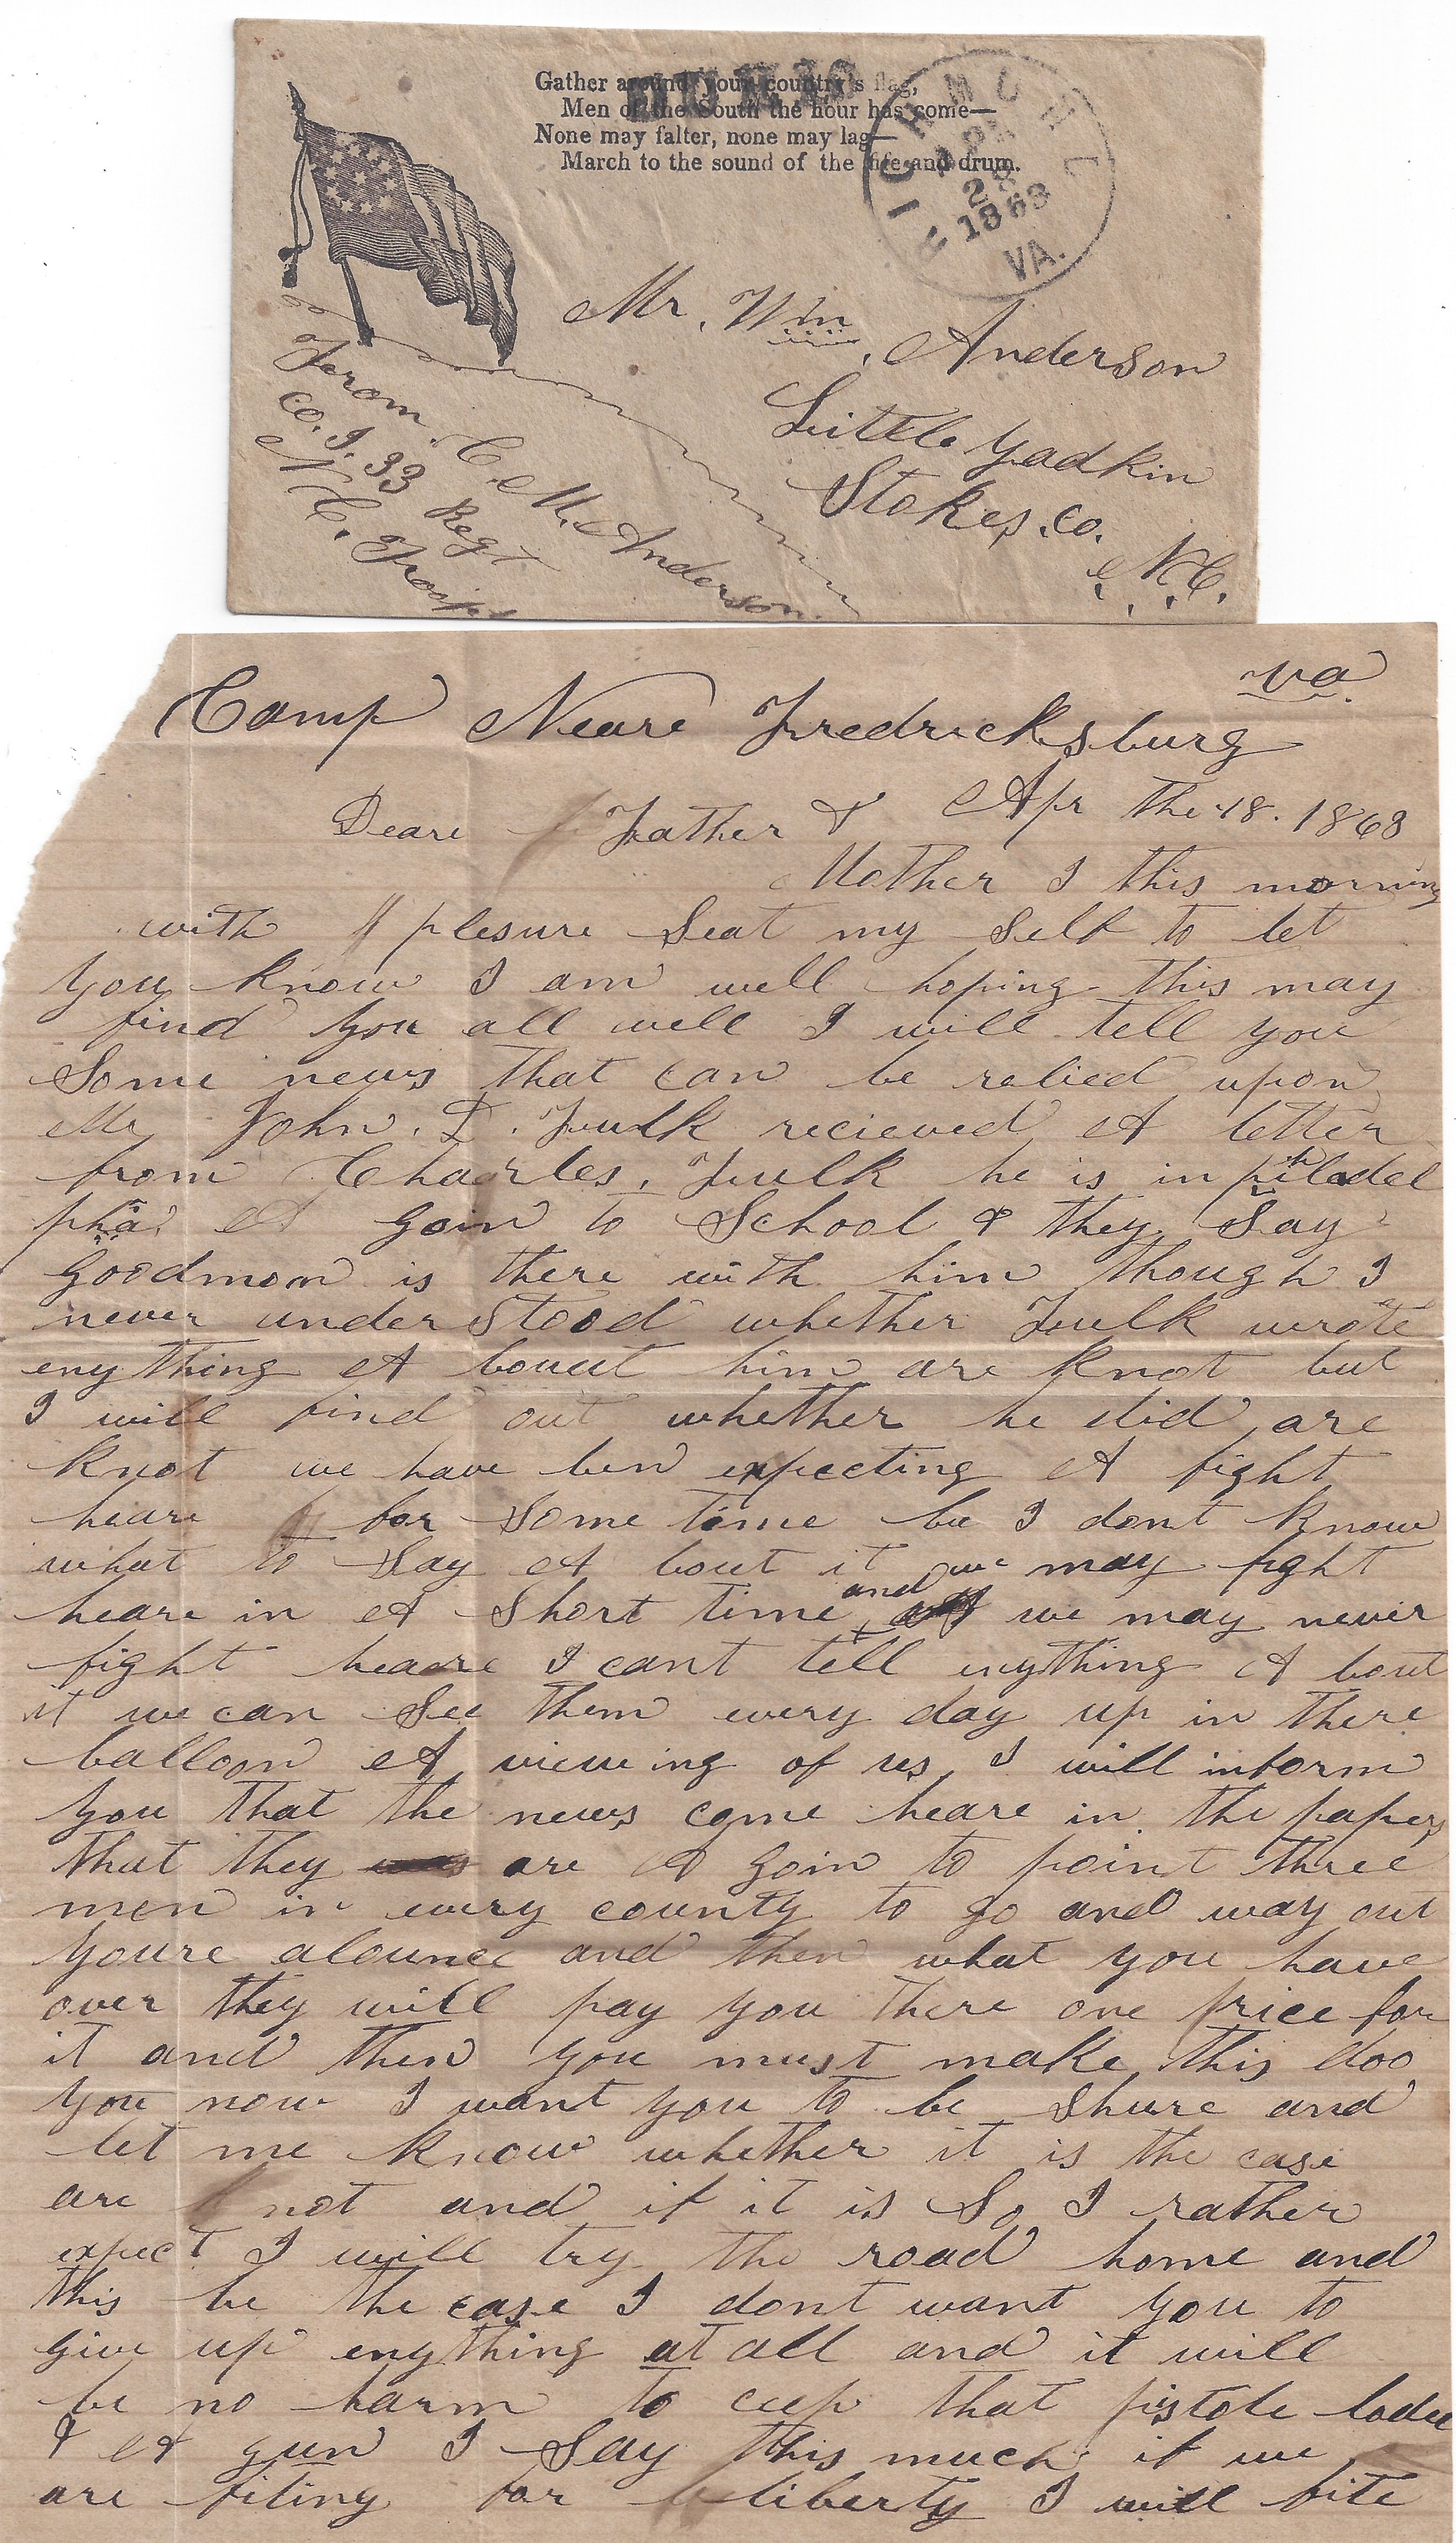 Gather around your country's flag,
Men of the South the hour has come—
None may falter, none may lag—
March to the sound of the fife and drum.
DUE 10
RICHMOND
1863
VA.
Mr. Wm. Anderson
Little Yadkin
Stokes. co.
N.C.
From C. M. Anderson.
Co. I. 33 Regt
N C. Troops
va.
Camp Neare Fredricksburg
Apr the 18. 1863
Deare Father &
Mother I this morning
with plesure Seat my Self to let
you know I am well hoping this may
find you all well I will tell you
Some news that can be relied upon
Mr John. Fulk recieved A letter
from Charles. Fulk he is in philadel
pha A goin to School & they Say
Goodmon is there with him though I
never under stood whether Fulk wrote
enything A bouut him are knot but
I will find out whether he did are
knot we have ben expecting A fight
heare for Some time bu I dont know
what to Say A bout it we may fight
heare in A Short time and we may never
fight heare I cant tell enything A bout
it we can See them every day up in there
balloon A viewing of us I will inform
you that the news come heare in the papers
that they are A goin to point three
men in every county to go and way out
youre alounce and then what you have
over they will pay you there one price for
it and then you must make this doo
you now I want you to be Shure and
let me know whether it is the case
are not and if it is So I rather
expect I will try the road home and
this be the case I dont want you to
give up enything at all and it will
be no harm to ceep that pistole loded
& A gun I Say this much if we
are fiting for liberty I will fite